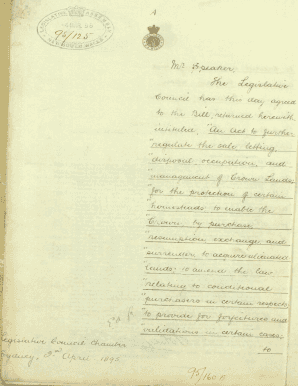 95/125
Mr Speaker
The Legislative
Council has this day agreed
to the Bill, returned herewith
intituled, "An Act to further
"regulate the sale letting,
disposal occupation, and
"management of Crown Lands;
"for the protection of certain
"homesteads to enable the
"Crown by purchase,
"resumption exchange and
surrender to acquire alienated
lands; to amend the law
relating to conditional
purchasers in certain respects
to provide for forfeitures and
validations in certain cases;
to
Legislative Council Chamber
Sydney, April 1895